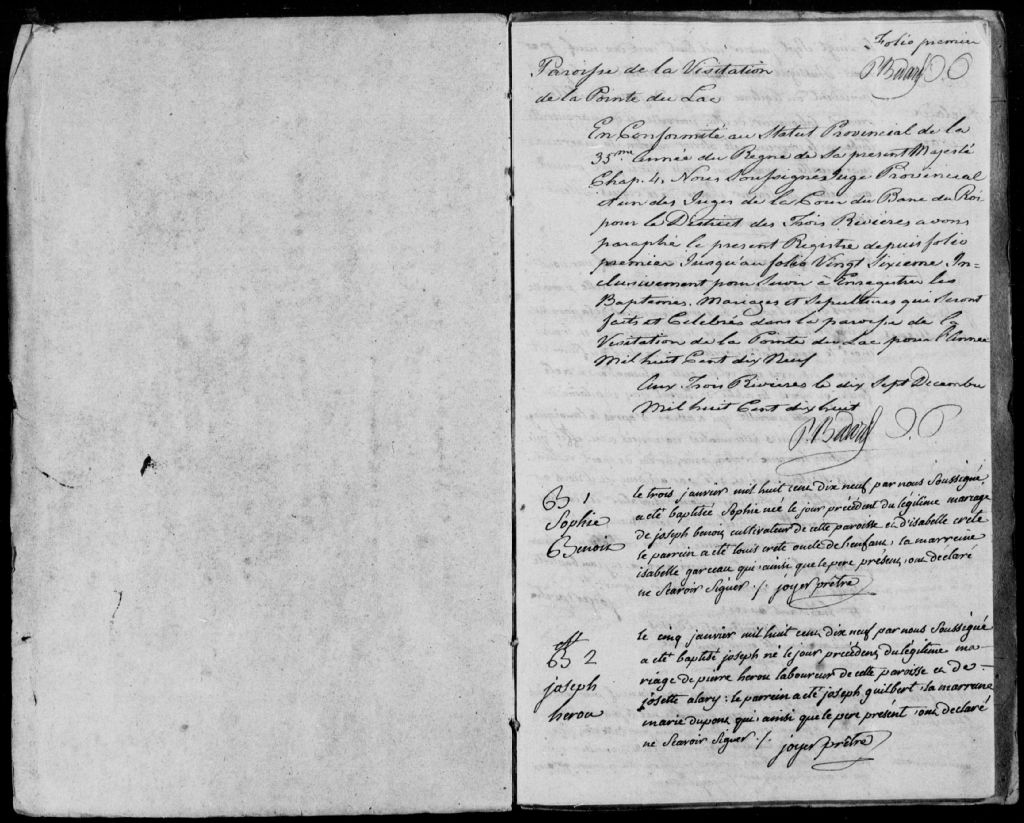 Folio premier
P. Bedard J. P.
Paroisse de la Visitation
de la Pointe du Lac
En Conformité au Statut Provincial de la
35me année du Regne de Sa present Majesté
Chap. 4, Nous Soussigné Juge Provincial
et un des Juges de la Cour du Banc du Roi
pour le District des Trois Rivieres avons
paraphé le present Registre depuis folio
premier Jusqu'au folio Vingt Sixieme In-
clusivement pour Servir a Enregistrer les
Baptemes, Mariages et Sepultures qui Seront
faits et Célebrés dans la paroisse de la
Visitation de la Pointe du Lac pour l'Année
Mil huit Cent dix Neuf
Aux Trois Rivieres le dix Sept Decembre
Mil huit Cent dix huit
P. Bedard J. P.
B 1
Sophie
Benoit
le trois janvier mil huit cent dix neuf par nous Soussigné
a été baptisée Sophie née le jour précédent du légitime mariage
de joseph benoit cultivateur de cette paroisse et d'isabelle crete
le parrein a été louis crete oncle de l'enfant, la marreine
isabelle garceau qui, ainsi que le pere présent, ont déclaré
ne Scavoir Signer ./. joyer prêtre
B 2
joseph
herou
le cinq janvier mil huit cent dix neuf par nous Soussigné
a été baptisé joseph né le jour précédent du légitime ma-
riage de pierre herou laboureur de cette paroisse et de
josette alary : le parrein a été joseph guilbert, la marreine
marie dupont qui, ainsi que le pere présent, ont déclaré
ne Scavoir Signer ./. joyer prêtre